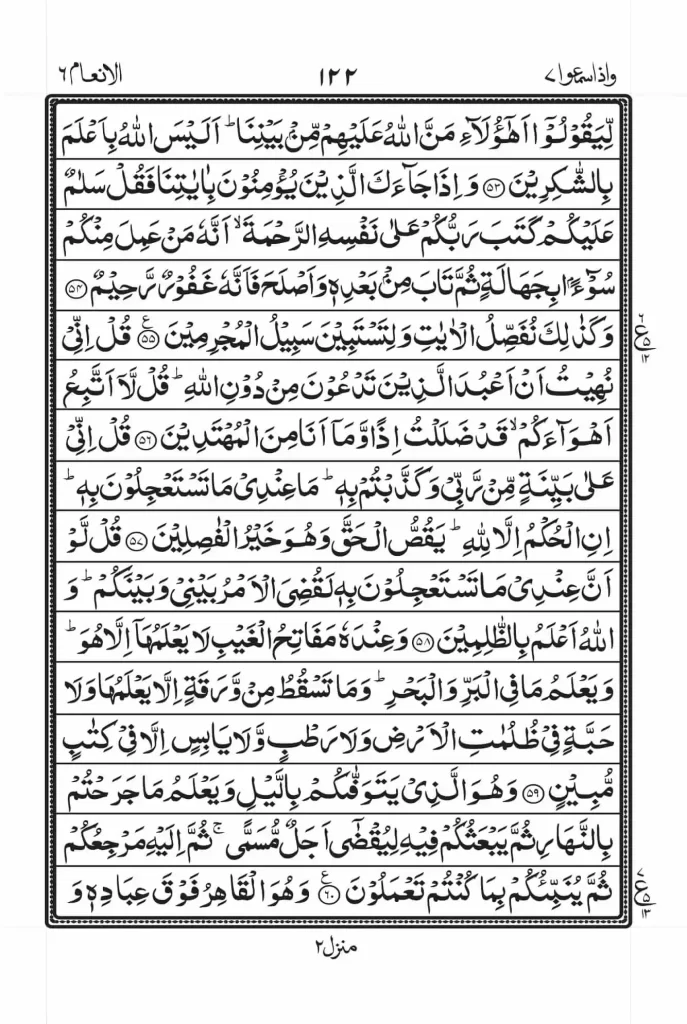 واذاسمعوا ۷
۱۲۲
الانعام ۶
لِّيَقُوْلُوْۤا اَهٰۤؤُلَآءِ مَنَّ اللّٰهُ عَلَيْهِمْ مِّنْۢ بَيْنِنَا ؕ اَلَيْسَ اللّٰهُ بِاَعْلَمَ
بِالشّٰكِرِيْنَ ﴿۵۳﴾ وَ اِذَا جَآءَكَ الَّذِيْنَ يُؤْمِنُوْنَ بِاٰيٰتِنَا فَقُلْ سَلٰمٌ
عَلَيْكُمْ كَتَبَ رَبُّكُمْ عَلٰى نَفْسِهِ الرَّحْمَةَ ۙ اَنَّهٗ مَنْ عَمِلَ مِنْكُمْ
سُوْٓءًۢا بِجَهَالَةٍ ثُمَّ تَابَ مِنْۢ بَعْدِهٖ وَ اَصْلَحَ فَاَنَّهٗ غَفُوْرٌ رَّحِيْمٌ ﴿۵۴﴾
وَ كَذٰلِكَ نُفَصِّلُ الْاٰيٰتِ وَ لِتَسْتَبِيْنَ سَبِيْلُ الْمُجْرِمِيْنَ ﴿۵۵﴾ ع قُلْ اِنِّيْ
۶ ع ۵ ۱۲
نُهِيْتُ اَنْ اَعْبُدَ الَّذِيْنَ تَدْعُوْنَ مِنْ دُوْنِ اللّٰهِ ؕ قُلْ لَّاۤ اَتَّبِعُ
اَهْوَآءَكُمْ ۙ قَدْ ضَلَلْتُ اِذًا وَّ مَاۤ اَنَا مِنَ الْمُهْتَدِيْنَ ﴿۵۶﴾ قُلْ اِنِّيْ
عَلٰى بَيِّنَةٍ مِّنْ رَّبِّيْ وَ كَذَّبْتُمْ بِهٖ ؕ مَا عِنْدِيْ مَا تَسْتَعْجِلُوْنَ بِهٖ ؕ
اِنِ الْحُكْمُ اِلَّا لِلّٰهِ ؕ يَقُصُّ الْحَقَّ وَ هُوَ خَيْرُ الْفٰصِلِيْنَ ﴿۵۷﴾ قُلْ لَّوْ
اَنَّ عِنْدِيْ مَا تَسْتَعْجِلُوْنَ بِهٖ لَقُضِيَ الْاَمْرُ بَيْنِيْ وَ بَيْنَكُمْ ؕ وَ
اللّٰهُ اَعْلَمُ بِالظّٰلِمِيْنَ ﴿۵۸﴾ وَ عِنْدَهٗ مَفَاتِحُ الْغَيْبِ لَا يَعْلَمُهَاۤ اِلَّا هُوَ ؕ
وَ يَعْلَمُ مَا فِي الْبَرِّ وَ الْبَحْرِ ؕ وَ مَا تَسْقُطُ مِنْ وَّرَقَةٍ اِلَّا يَعْلَمُهَا وَ لَا
حَبَّةٍ فِيْ ظُلُمٰتِ الْاَرْضِ وَ لَا رَطْبٍ وَّ لَا يَابِسٍ اِلَّا فِيْ كِتٰبٍ
مُّبِيْنٍ ﴿۵۹﴾ وَ هُوَ الَّذِيْ يَتَوَفّٰىكُمْ بِالَّيْلِ وَ يَعْلَمُ مَا جَرَحْتُمْ
بِالنَّهَارِ ثُمَّ يَبْعَثُكُمْ فِيْهِ لِيُقْضٰۤى اَجَلٌ مُّسَمًّى ۚ ثُمَّ اِلَيْهِ مَرْجِعُكُمْ
ثُمَّ يُنَبِّئُكُمْ بِمَا كُنْتُمْ تَعْمَلُوْنَ ﴿۶۰﴾ ع وَ هُوَ الْقَاهِرُ فَوْقَ عِبَادِهٖ وَ
۷ ع ۵ ۱۳
منزل ۲